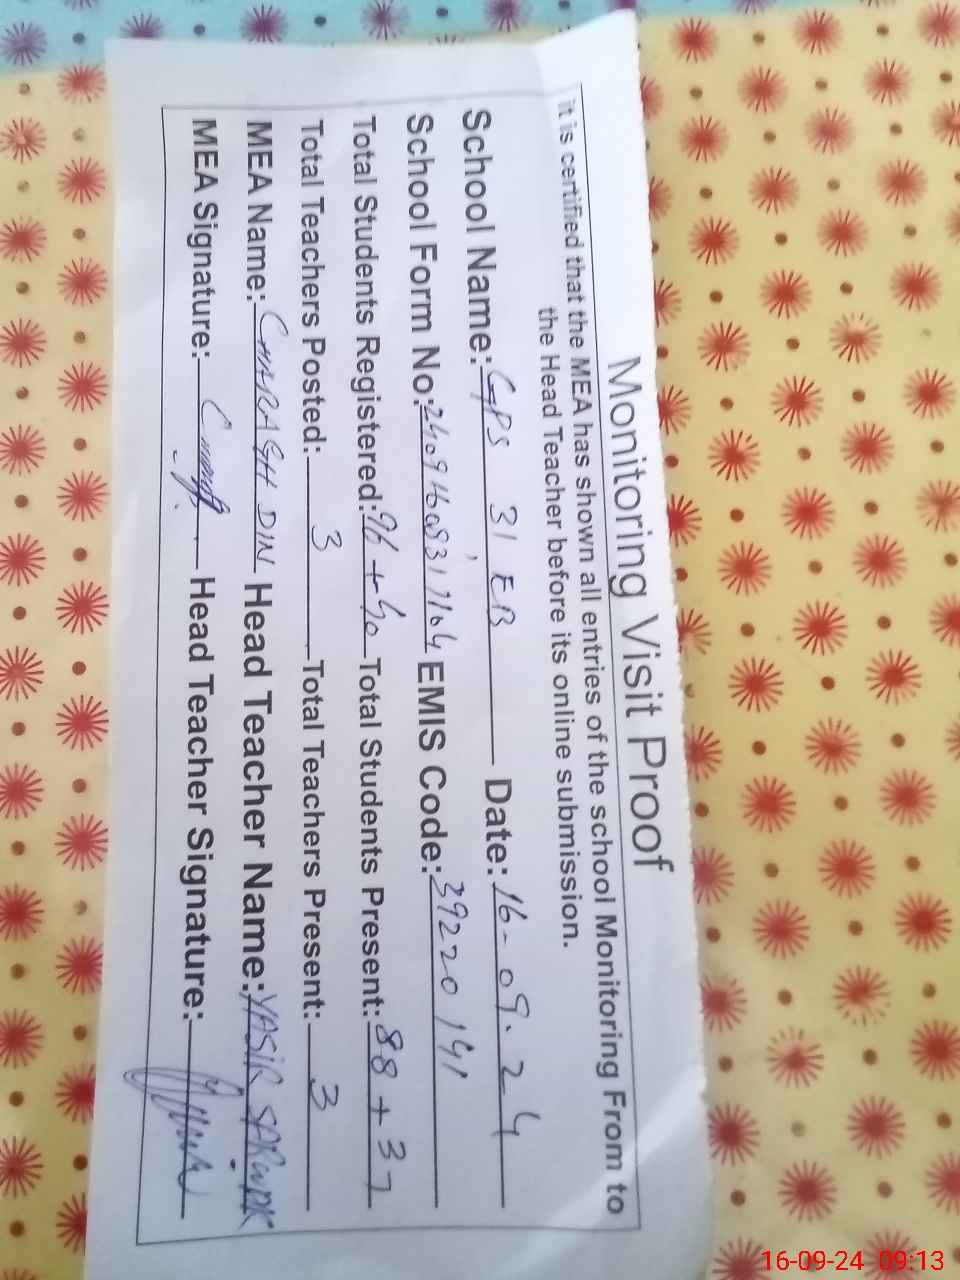 Monitoring Visit Proof
it is certified that the MEA has shown all entries of the school Monitoring From to
the Head Teacher before its online submission.
School Name: GPS 31 EB Date: 16-09.24
School Form No: EMIS Code: 39220191
Total Students Registered: 96 + 40 Total Students Present: 88 + 37
Total Teachers Posted: 3 Total Teachers Present: 3
MEA Name: CHARAGH DIN Head Teacher Name: YASIR
MEA Signature: Head Teacher Signature:
16-09-24 09:13